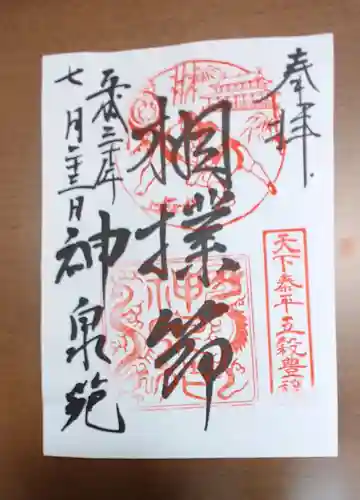 奉拝
天下泰平五穀豊穣
相撲節
平成三十年
七月二十三日
神泉苑